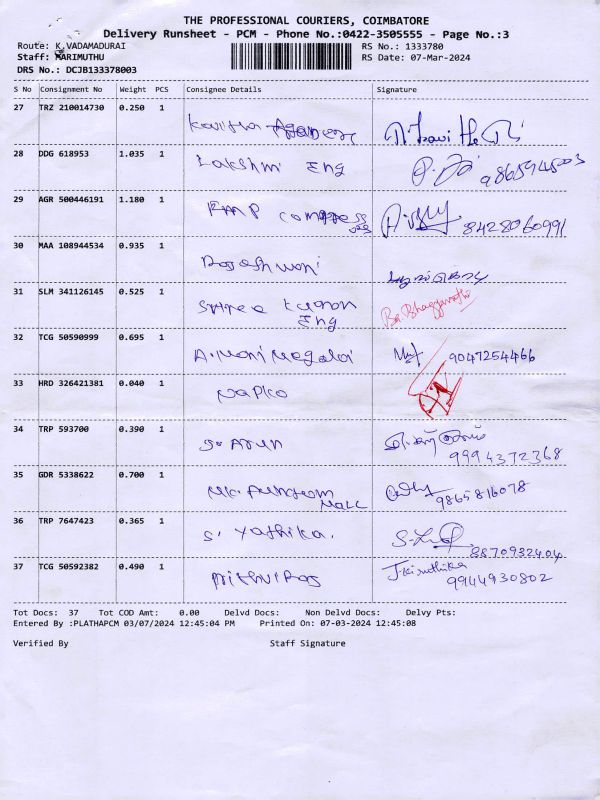 THE PROFESSIONAL COURIERS, COIMBATORE
Delivery Runsheet - PCM - Phone No.:0422-3505555 - Page No.:3
Route: K.VADAMADURAI RS No.: 1333780
Staff: MARIMUTHU RS Date: 07-Mar-2024
DRS No.: DCJB133378003
S No Consignment No Weight PCS Consignee Details Signature
27 TRZ 210014730 0.250 1
Kavitha
28 DDG 618953 1.035 1
Lakshmi Eng 9865945003
29 AGR 500446191 1.180 1
8428060991
30 MAA 108944534 0.935 1
Rajeshwari
31 SLM 341126145 0.525 1
Shree
Eng
32 TCG 50590999 0.695 1
A. Manimegalai 9047254466
33 HRD 326421381 0.040 1
Napko
34 TRP 593700 0.390 1
Arun
9994372368
35 GDR 5338622 0.700 1
Mall 9865816078
36 TRP 7647423 0.365 1
S. Yathika.
8870932404
37 TCG 50592382 0.490 1
Prithviraj 9944930802
Tot Docs: 37 Tot COD Amt: 0.00 Delvd Docs: Non Delvd Docs: Delvy Pts:
Entered By :PLATHAPCM 03/07/2024 12:45:04 PM Printed On: 07-03-2024 12:45:08
Verified By Staff Signature